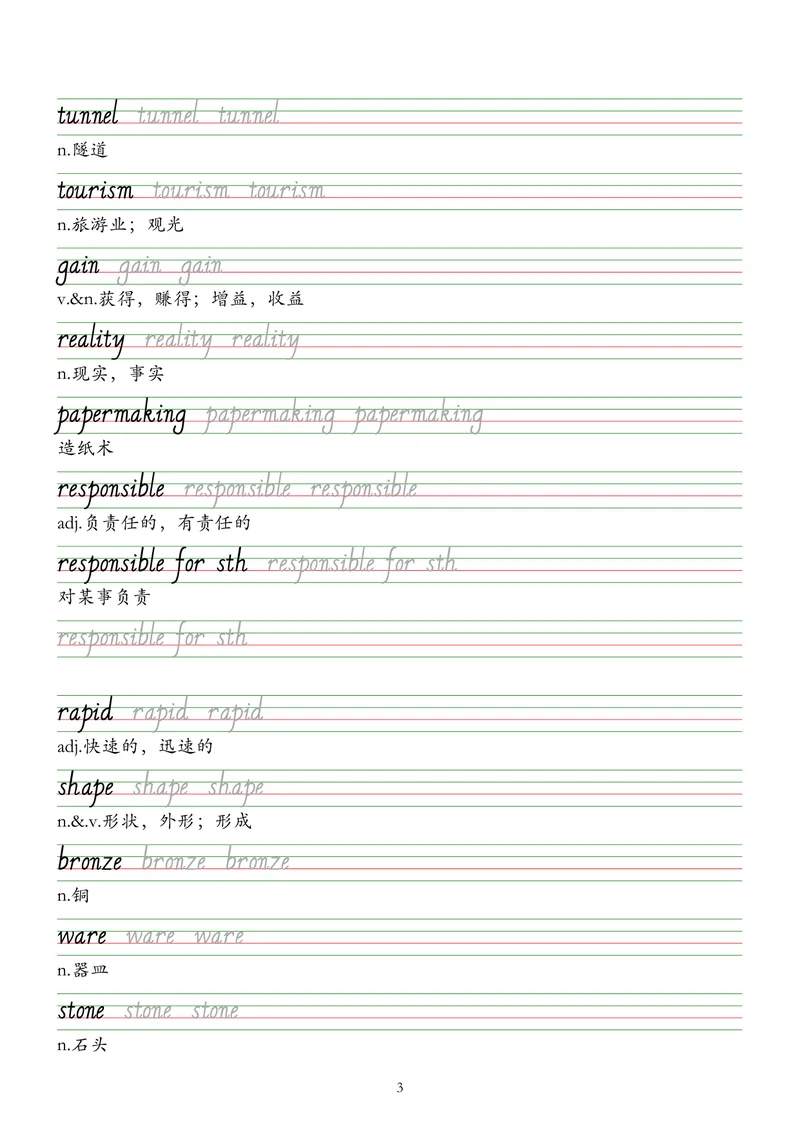 tunnel tunnel tunnel
n.隧道
tourism tourism tourism
n.旅游业；观光
gain gain gain
v.&n.获得，赚得；增益，收益
reality reality reality
n.现实，事实
papermaking papermaking papermaking
造纸术
responsible responsible responsible
adj.负责任的，有责任的
responsible for sth responsible for sth
对某事负责
responsible for sth
rapid rapid rapid
adj.快速的，迅速的
shape shape shape
n.&.v.形状，外形；形成
bronze bronze bronze
n.铜
ware ware ware
n.器皿
stone stone stone
n.石头
3